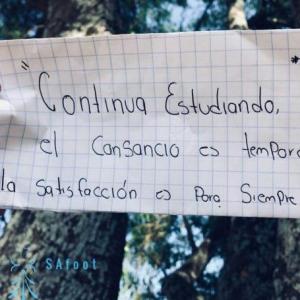 "Continua Estudiando,
el Cansancio es tempora
la Satisfacción es para Siempre
SAfoot